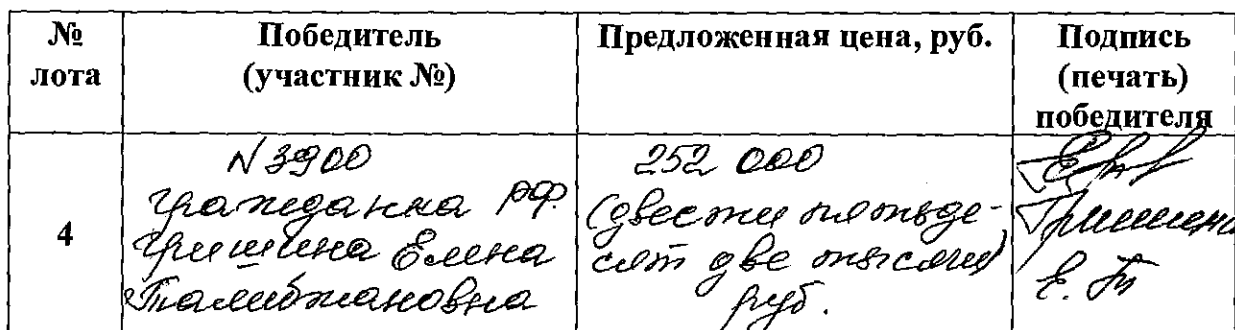 № лота
Победитель (участник №)
Предложенная цена, руб.
Подпись (печать) победителя
4
N 3900
гражданка РФ.
Гришина Елена
Талибжановна
252 000
(двести пятьде-
сят две тысячи)
руб.
Гришина
Е. Т